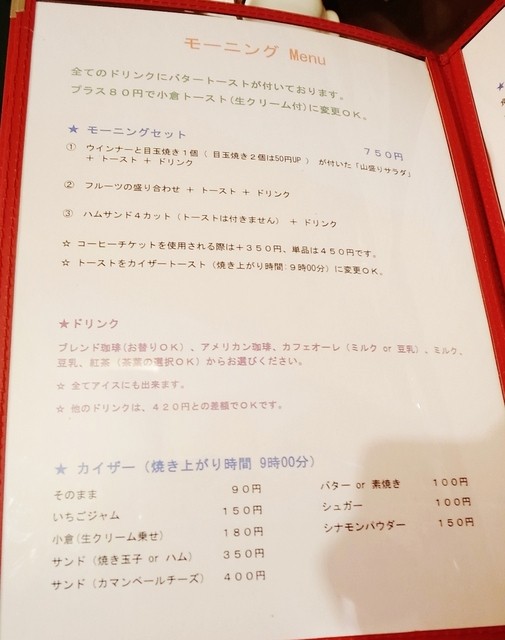 モーニング Menu
全てのドリンクにバタートーストが付いております。
プラス８０円で小倉トースト(生クリーム付)に変更ＯＫ。
★ モーニングセット ７５０円
① ウインナーと目玉焼き１個（ 目玉焼き２個は50円UP ） が付いた「山盛りサラダ」
＋ トースト ＋ ドリンク
② フルーツの盛り合わせ ＋ トースト ＋ ドリンク
③ ハムサンド４カット（トーストは付きません） ＋ ドリンク
☆ コーヒーチケットを使用される際は＋３５０円、単品は４５０円です。
☆ トーストをカイザートースト（焼き上がり時間：９時00分）に変更ＯＫ。
★ドリンク
ブレンド珈琲(お替りＯＫ）、アメリカン珈琲、カフェオーレ（ミルク or 豆乳）、ミルク、
豆乳、紅茶（茶葉の選択ＯＫ）からお選びください。
☆ 全てアイスにも出来ます。
☆ 他のドリンクは、４２０円との差額でＯＫです。
★ カイザー（焼き上がり時間 9時00分）
そのまま ９０円
いちごジャム １５０円
小倉(生クリーム乗せ） １８０円
サンド（焼き玉子 or ハム） ３５０円
サンド（カマンベールチーズ） ４００円
バター or 素焼き １００円
シュガー １００円
シナモンパウダー １５０円